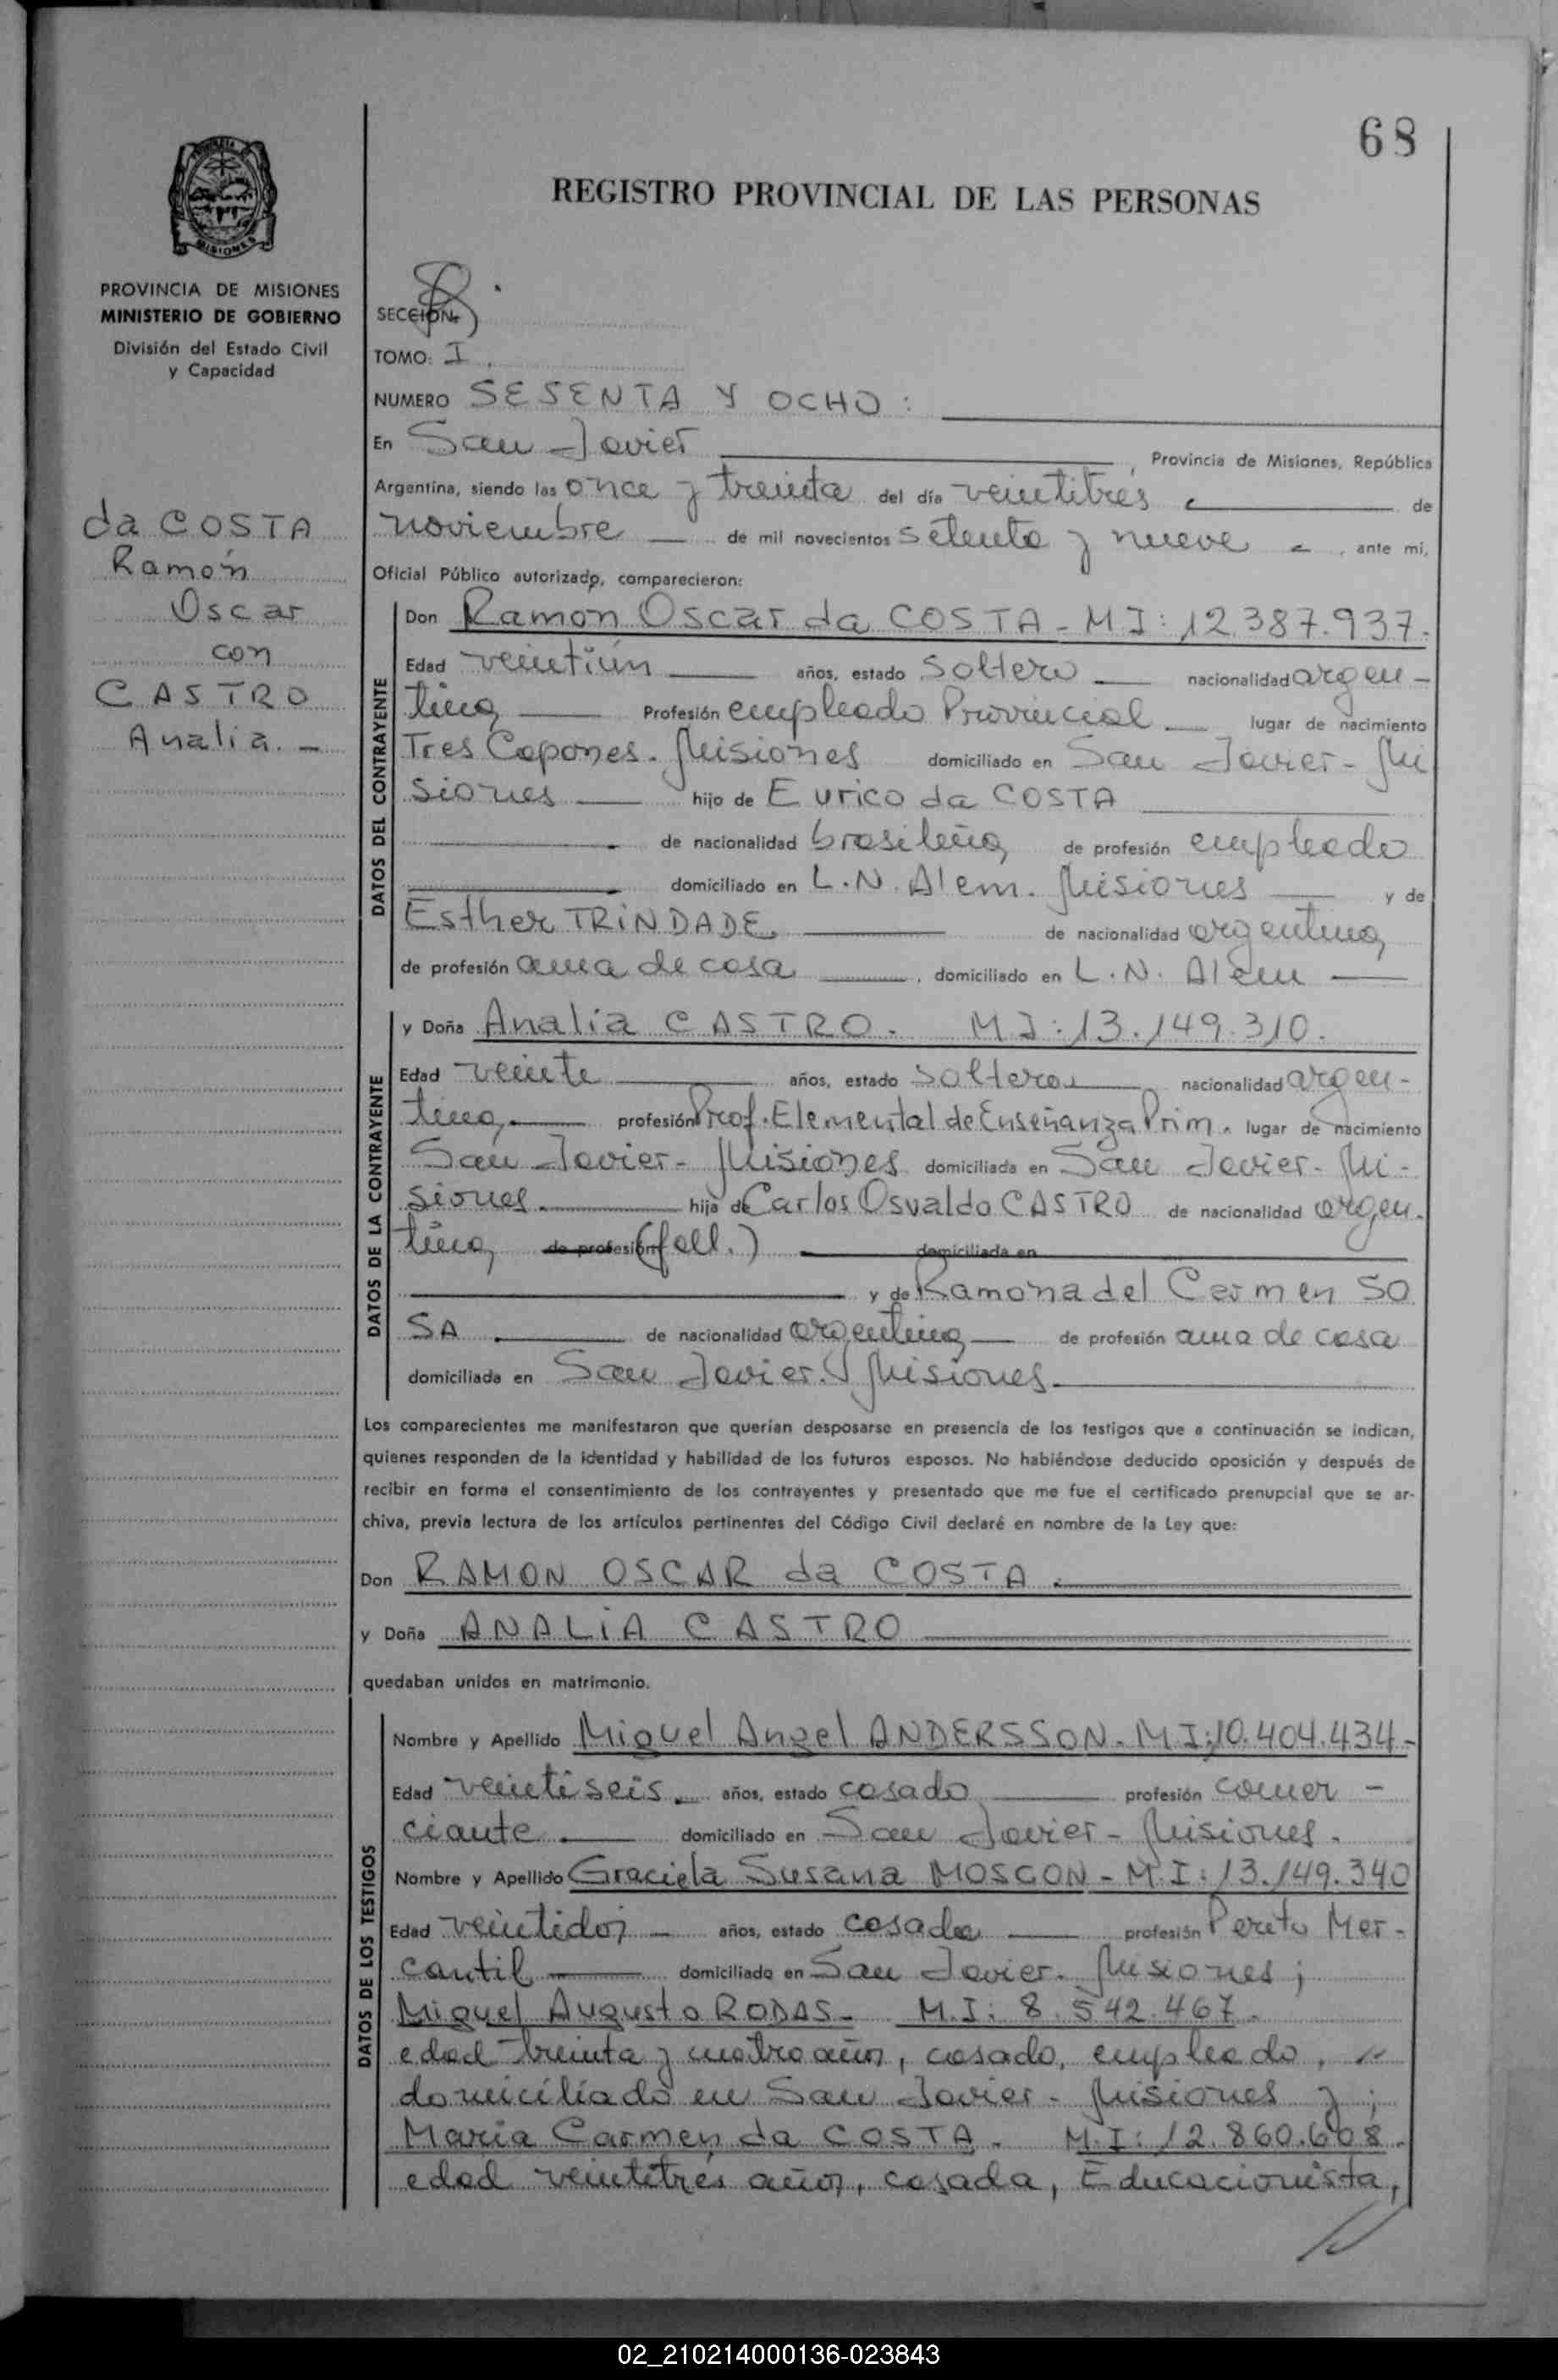 68
REGISTRO PROVINCIAL DE LAS PERSONAS
MISIONES
PROVINCIA DE MISIONES
MINISTERIO DE GOBIERNO
División del Estado Civil
y Capacidad
da COSTA
Ramón
Oscar
con
CASTRO
Analia. -
SECCION
TOMO: I.
NUMERO SESENTA Y OCHO:
En San Javier , Provincia de Misiones, República
Argentina, siendo las once y treinta del día veintitrés de
noviembre de mil novecientos setenta y nueve , ante mí,
Oficial Público autorizado, comparecieron:
DATOS DEL CONTRAYENTE
Don Ramon Oscar da COSTA - MI: 12.387.937.
Edad veintiún años, estado soltero nacionalidad argen-
tina Profesión empleado Provincial lugar de nacimiento
Tres Capones. Misiones domiciliado en San Javier - Mi
siones hijo de Eurico da COSTA
de nacionalidad brasileña de profesión empleado
domiciliado en L.N. Alem. Misiones y de
Esther TRINDADE de nacionalidad argentina
de profesión ama de casa , domiciliado en L.N. Alem
DATOS DE LA CONTRAYENTE
y Doña Analia CASTRO. MI: 13.149.310.
Edad veinte años, estado soltera nacionalidad argen-
tina, profesión Prof. Elemental de Enseñanza Prim. lugar de nacimiento
San Javier - Misiones domiciliada en San Javier - Mi-
siones. hija de Carlos Osvaldo CASTRO de nacionalidad argen-
tina, de profesión (fall.) domiciliada en
y de Ramona del Carmen SO
SA de nacionalidad argentina de profesión ama de casa
domiciliada en San Javier. Misiones.
Los comparecientes me manifestaron que querían desposarse en presencia de los testigos que a continuación se indican,
quienes responden de la identidad y habilidad de los futuros esposos. No habiéndose deducido oposición y después de
recibir en forma el consentimiento de los contrayentes y presentado que me fue el certificado prenupcial que se ar-
chiva, previa lectura de los artículos pertinentes del Código Civil declaré en nombre de la Ley que:
Don RAMON OSCAR da COSTA.
y Doña ANALIA CASTRO
quedaban unidos en matrimonio.
DATOS DE LOS TESTIGOS
Nombre y Apellido Miguel Angel ANDERSSON - MI: 10.404.434-
Edad veintiseis años, estado casado profesión comer-
ciante domiciliado en San Javier - Misiones.
Nombre y Apellido Graciela Susana MOSCON - M.I: 13.149.340
Edad veintidos años, estado casada profesión Perito Mer-
cantil domiciliada en San Javier - Misiones;
Miguel Augusto RODAS - M.I: 8.542.467.
edad treinta y cuatro años, casado, empleado,
domiciliado en San Javier - Misiones y;
Maria Carmen da COSTA - M.I: 12.860.608.
edad veintitrés años, casada, Educacionista,
02_210214000136-023843